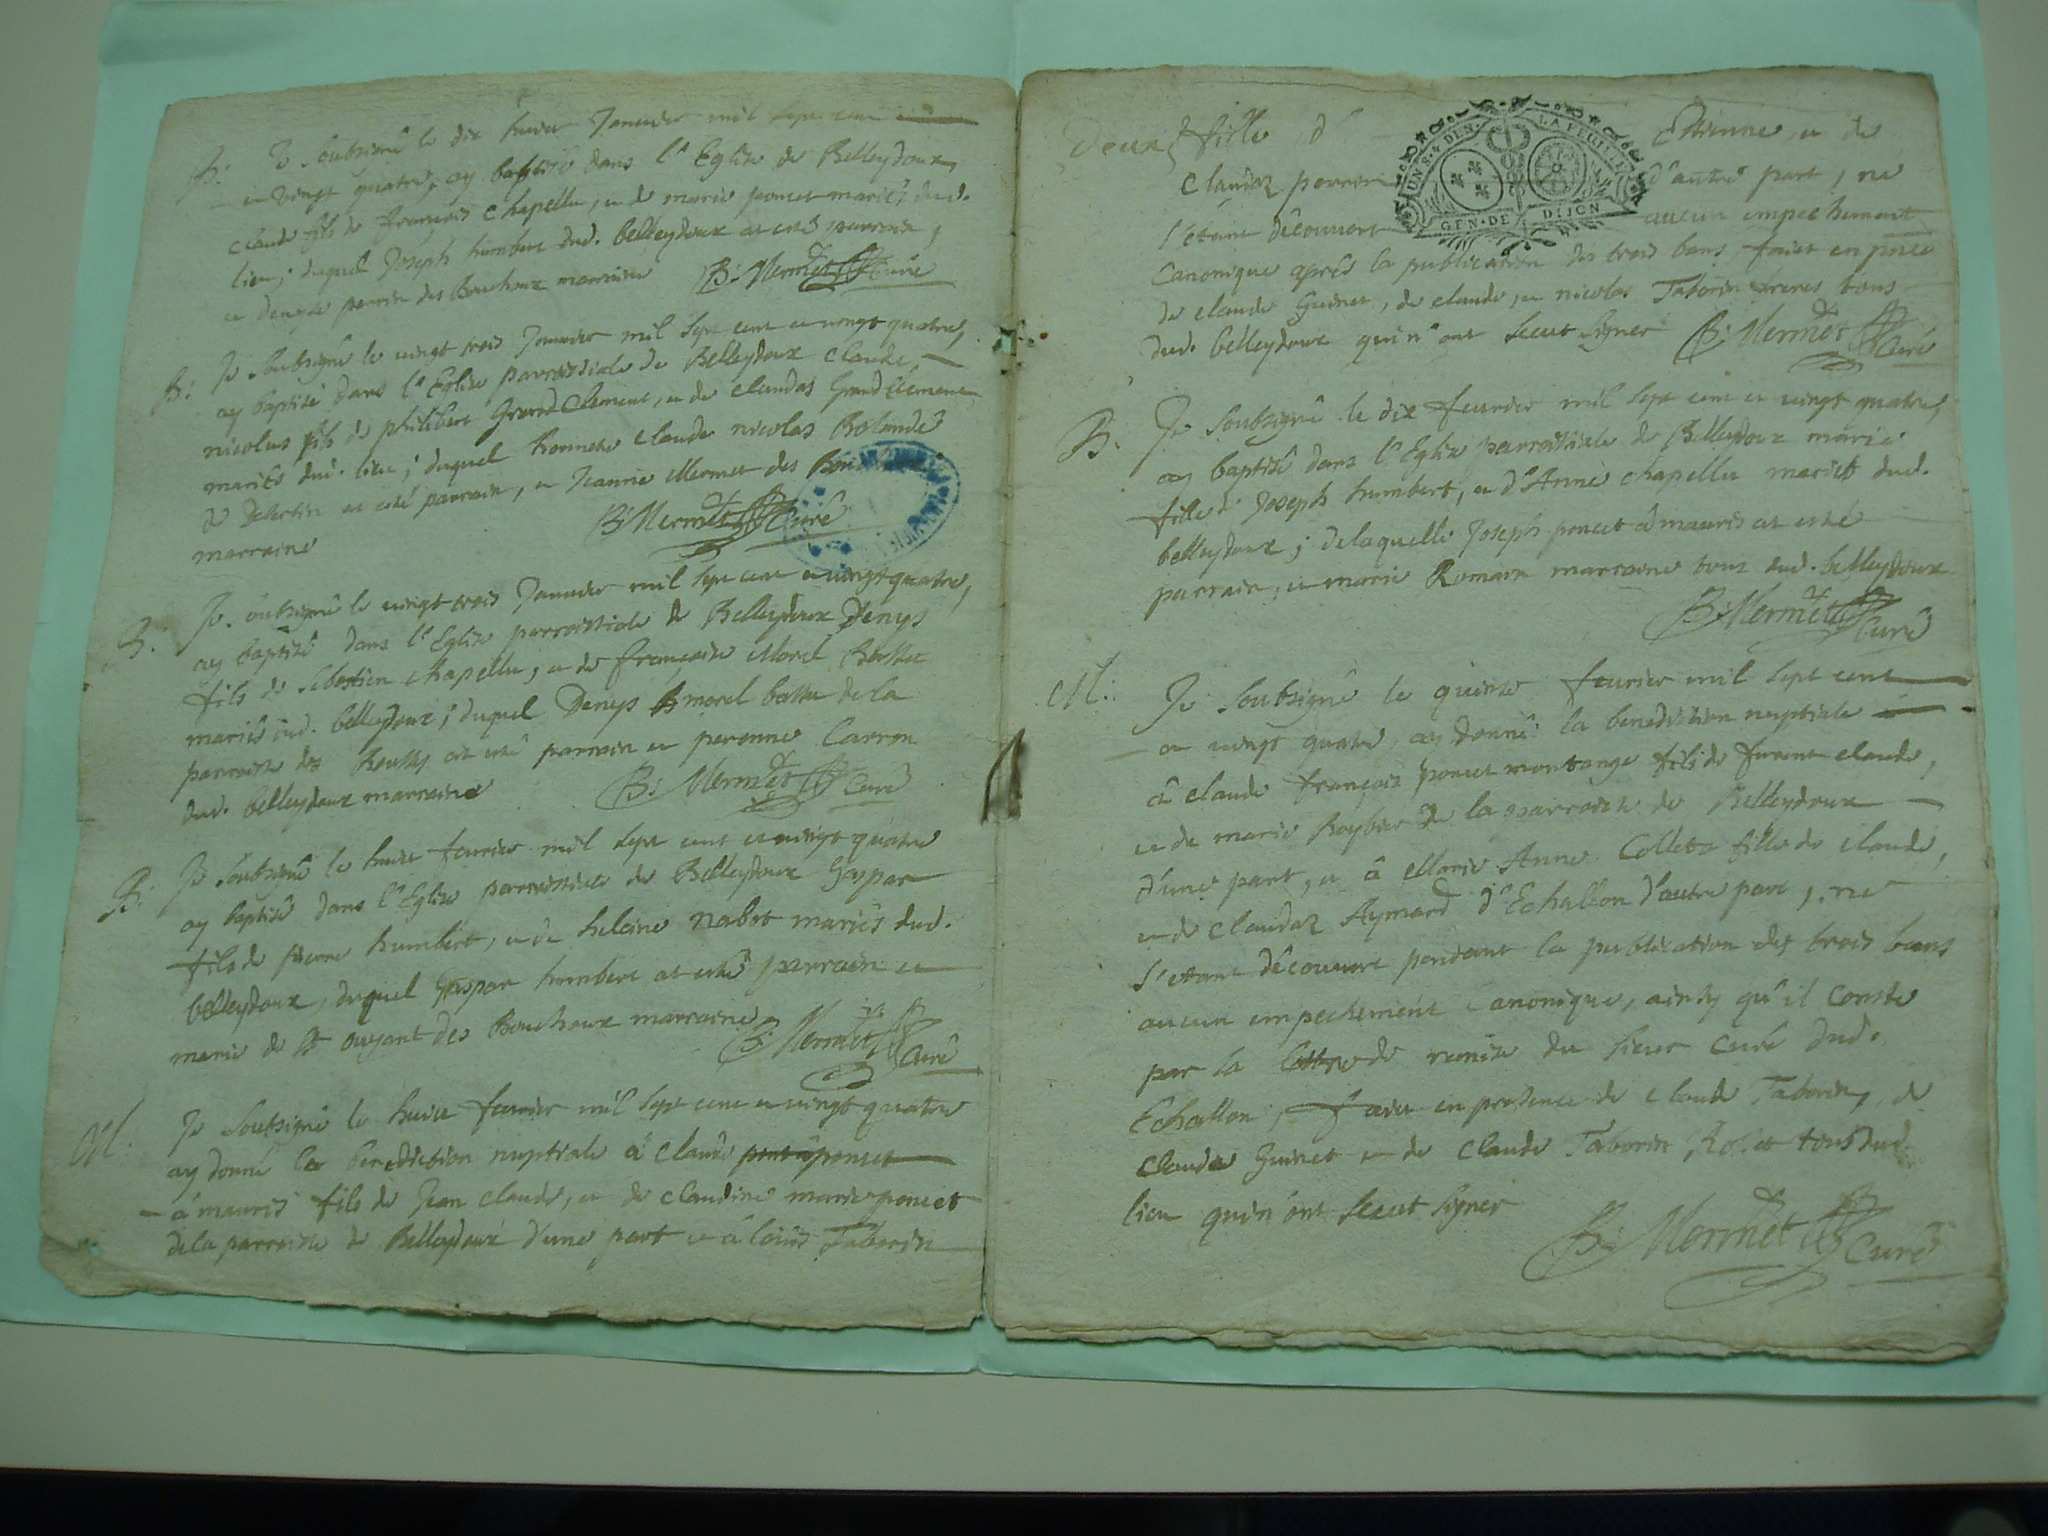 B: Je soubsigné le dix huict Janvier mil sept cent
et vingt quatre, ay baptisé dans l'Eglise de Belleydoux,
claude fils de françois Chapellu, et de marie poncet mariés dud.
lieu; duquel Joseph humbert dud. belleydoux at esté parrain,
et denyse perrin des Bouchoux marraine B: Mermet Curé
B: Je soubsigné le vingt trois Janvier mil sept cent et vingt quatre,
ay baptisé dans l'Eglise parroissiale de Belleydoux claude
nicolas fils de philibert Grand Clement, et de claudaz Grand Clement
mariés dud. lieu; duquel honneste claude nicolas Rolandé
de at esté parrain, et Jeanne Mermet des
marraine B: Mermet Curé
B: Je soubsigné le vingt trois Janvier mil sept cent et vingt quatre,
ay baptisé dans l'Eglise parroissiale de Belleydoux Denys
fils de sebastien chapellu, et de françoise Morel
mariés dud. belleydoux; duquel Denys morel de la
parroisse des at esté parrain et peronne Carron
dud. belleydoux marraine B: Mermet Curé
B: Je soubsigné le huict feuvrier mil sept cent et vingt quatre
ay baptisé dans l'Eglise parroissiale de Belleydoux Gaspar
fils de pierre humbert, et de heleine nabot mariés dud.
belleydoux, duquel Gaspar humbert at esté parrain et
marie de St ouyant des Bouchoux marraine B: Mermet Curé
M: Je soubsigné le huict feuvrier mil sept cent et vingt quatre
ay donné la benediction nuptiale à claude poncet
à mauris fils de Jean claude, et de claudine marie poncet
de la parroisse de Belleydoux d'une part et à Taborin
Deux fille d' Estienne, et de
claudaz perrin d'autre part, ne
s'étant découvert aucun impechement
UNE DEN. LA FEUILLE
GEN. DE DIJON
canonique aprés la publication des trois bans faict en pnce
de claude Guinet, de claude, et nicolas Taborin freres tous
dud. belleydoux qui n'ont sceut signer B: Mermet Curé
B. Je soubsigné le dix feuvrier mil sept cent et vingt quatre,
ay baptisé dans l'Eglise parroissiale de Belleydoux marie
fille d' Joseph humbert, et d'Anne chapellu mariés dud.
belleydoux; de laquelle Joseph poncet à mauris at esté
parrain, et marie Romain marraine tous dud. belleydoux
B: Mermet Curé
M: Je soubsigné le quinze feuvrier mil sept cent
et vingt quatre, ay donné la benediction nuptiale
à claude françois poncet montange fils de claude,
et de marie de la parroisse de Belleydoux
d'une part, et à Marie Anne Colletz fille de claude,
et de claudaz Aymard d'Echallon d'autre part, ne
s'etant découvert pendant la publication des trois bans
aucun impechement canonique, ainsy qu'il conste
par la lettre de remise du sieur curé dud.
Echallon, faict en presence de claude Taborin, de
claude Guinet et de claude Taborin tous dud.
lieu qui n'ont sceut signer
B: Mermet Curé